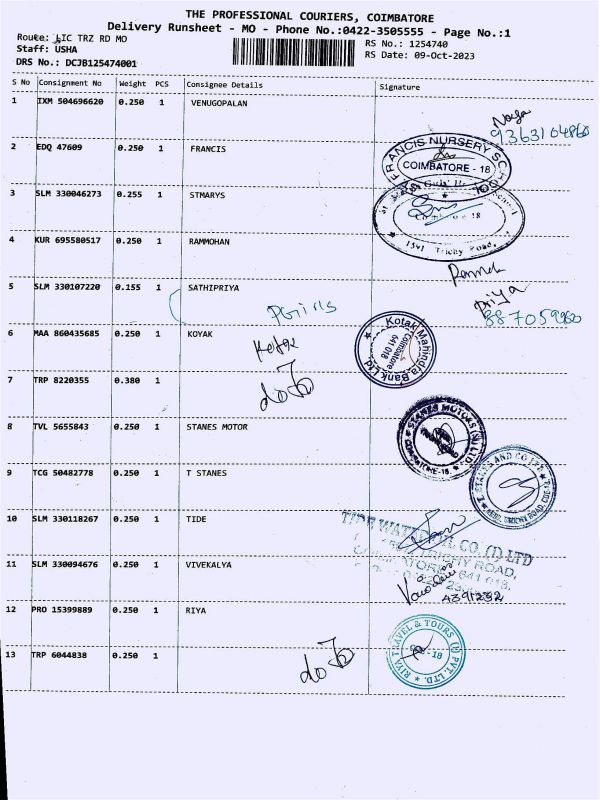 THE PROFESSIONAL COURIERS, COIMBATORE
Delivery Runsheet - MO - Phone No.:0422-3505555 - Page No.:1
Route: LIC TRZ RD MO
RS No.: 1254740
Staff: USHA
RS Date: 09-Oct-2023
DRS No.: DCJB125474001
S No Consignment No Weight PCS Consignee Details Signature
1 IXM 504696620 0.250 1 VENUGOPALAN
9363104860
2 EDQ 47609 0.250 1 FRANCIS
FRANCIS NURSERY SCHOOL
COIMBATORE - 18
3 SLM 330046273 0.255 1 STMARYS
Coimbatore 18
1541 Trichy Road,
4 KUR 695580517 0.250 1 RAMMOHAN
5 SLM 330107220 0.155 1 SATHIPRIYA
PGirls
Priya
887059860
6 MAA 860435685 0.250 1 KOYAK
Kotak Mahindra Bank Ltd
Coimbatore
641 018
7 TRP 8220355 0.380 1
do To
8 TVL 5655843 0.250 1 STANES MOTOR
STANES MOTORS (S) LTD.
COIMBATORE-18.
9 TCG 50482778 0.250 1 T STANES
T. STANES AND CO LTD.
TRICHY ROAD, CBE-18
10 SLM 330118267 0.250 1 TIDE
TIDE WATER OIL CO. (I) LTD
TRICHY ROAD,
COIMBATORE - 641 018.
11 SLM 330094676 0.250 1 VIVEKALYA
12 PRO 15399889 0.250 1 RIYA
RIYA TRAVEL & TOURS (I) PVT. LTD.
CBE-18
13 TRP 6044838 0.250 1
do To